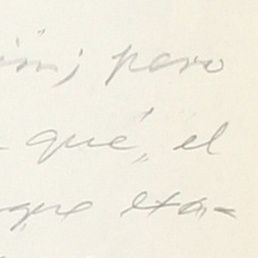 ión; pero
qué, el
que eta-